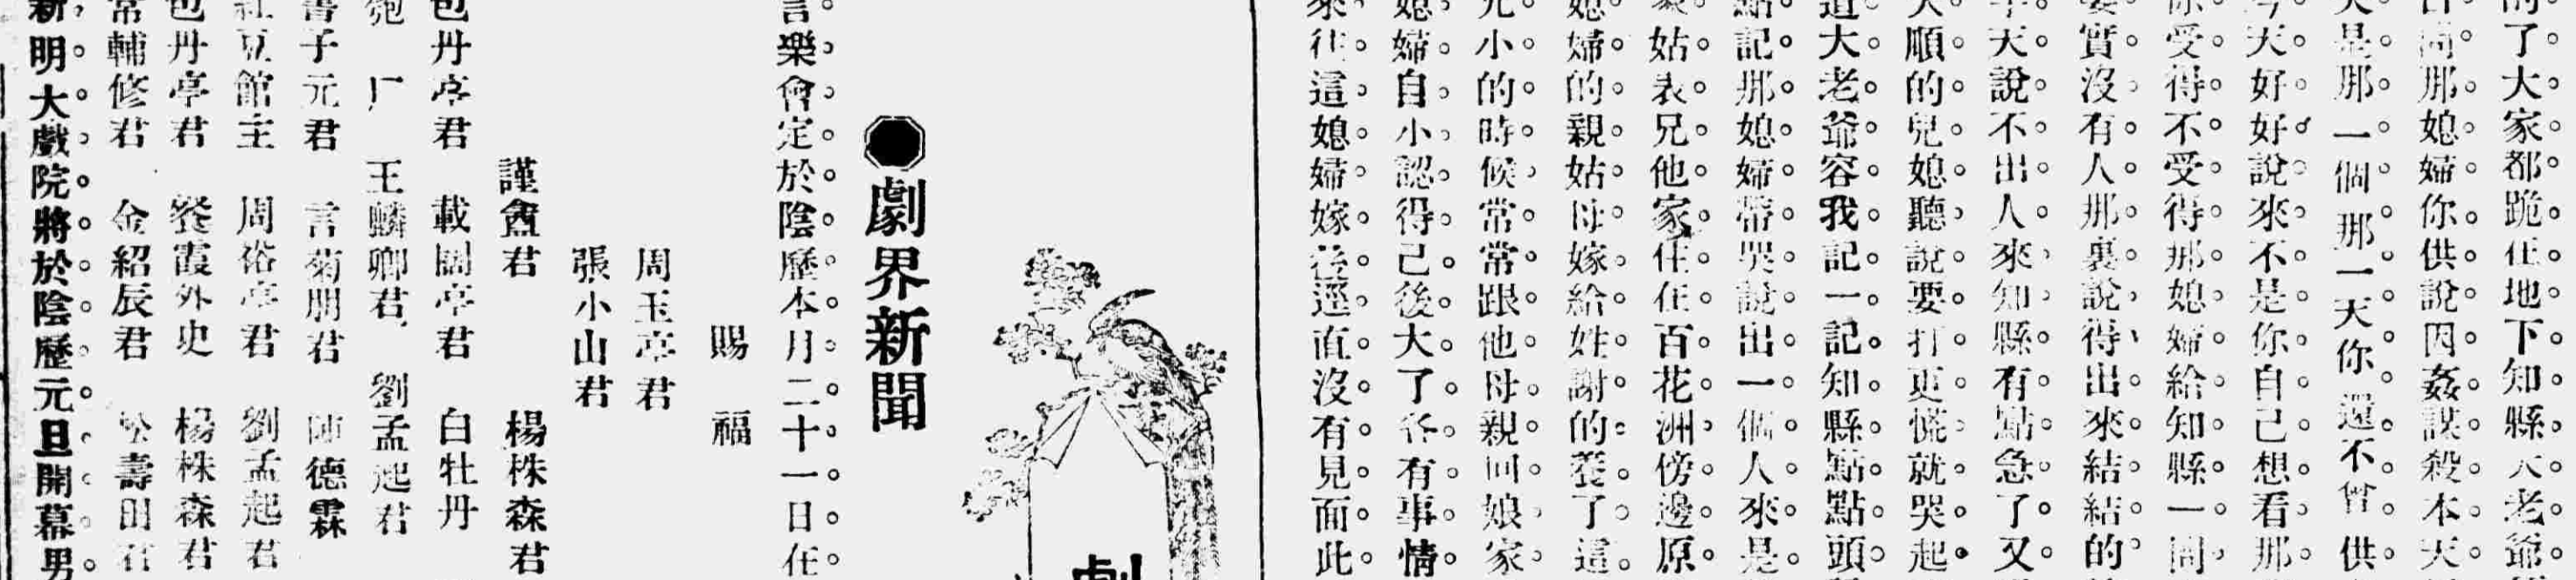 的了大家都跪在地下知縣大老爺
白問那媳婦你供說因姦謀殺本天
是那一個那一天你還不曾供
今天好好說來不是你自己想看那
你受得不受得那媳婦給知縣一問
要實沒有人那裏說得出來結結的
半天說不出人來知縣有點急了又
大順的兒媳聽說要打更慌就哭起
道大老爺容我記一記知縣點點頭
點記那媳婦帶哭說出一個人來是
姑表兄他家住在百花洲傍邊原
媳婦的親姑母嫁給姓謝的養了這
兄小的時候常常跟他母親回娘家
媳婦自小認得己後大了各有事情
來往這媳婦嫁後逕直沒有見面此
劇
●劇界新聞
言樂會定於陰歷本月二十一日在
賜　福
周玉亭君
張小山君
謹盦君　楊株森君
包丹亭君　載闊亭君　白牡丹
厂　王麟卿君　劉孟起君
書子元君　言菊朋君　陳德霖
紅豆館主　周裕亭君　劉孟起君
包丹亭君　餐霞外史　楊株森君
常輔修君　金紹辰君　松壽田君
新明大戲院將於陰歷元旦開幕男